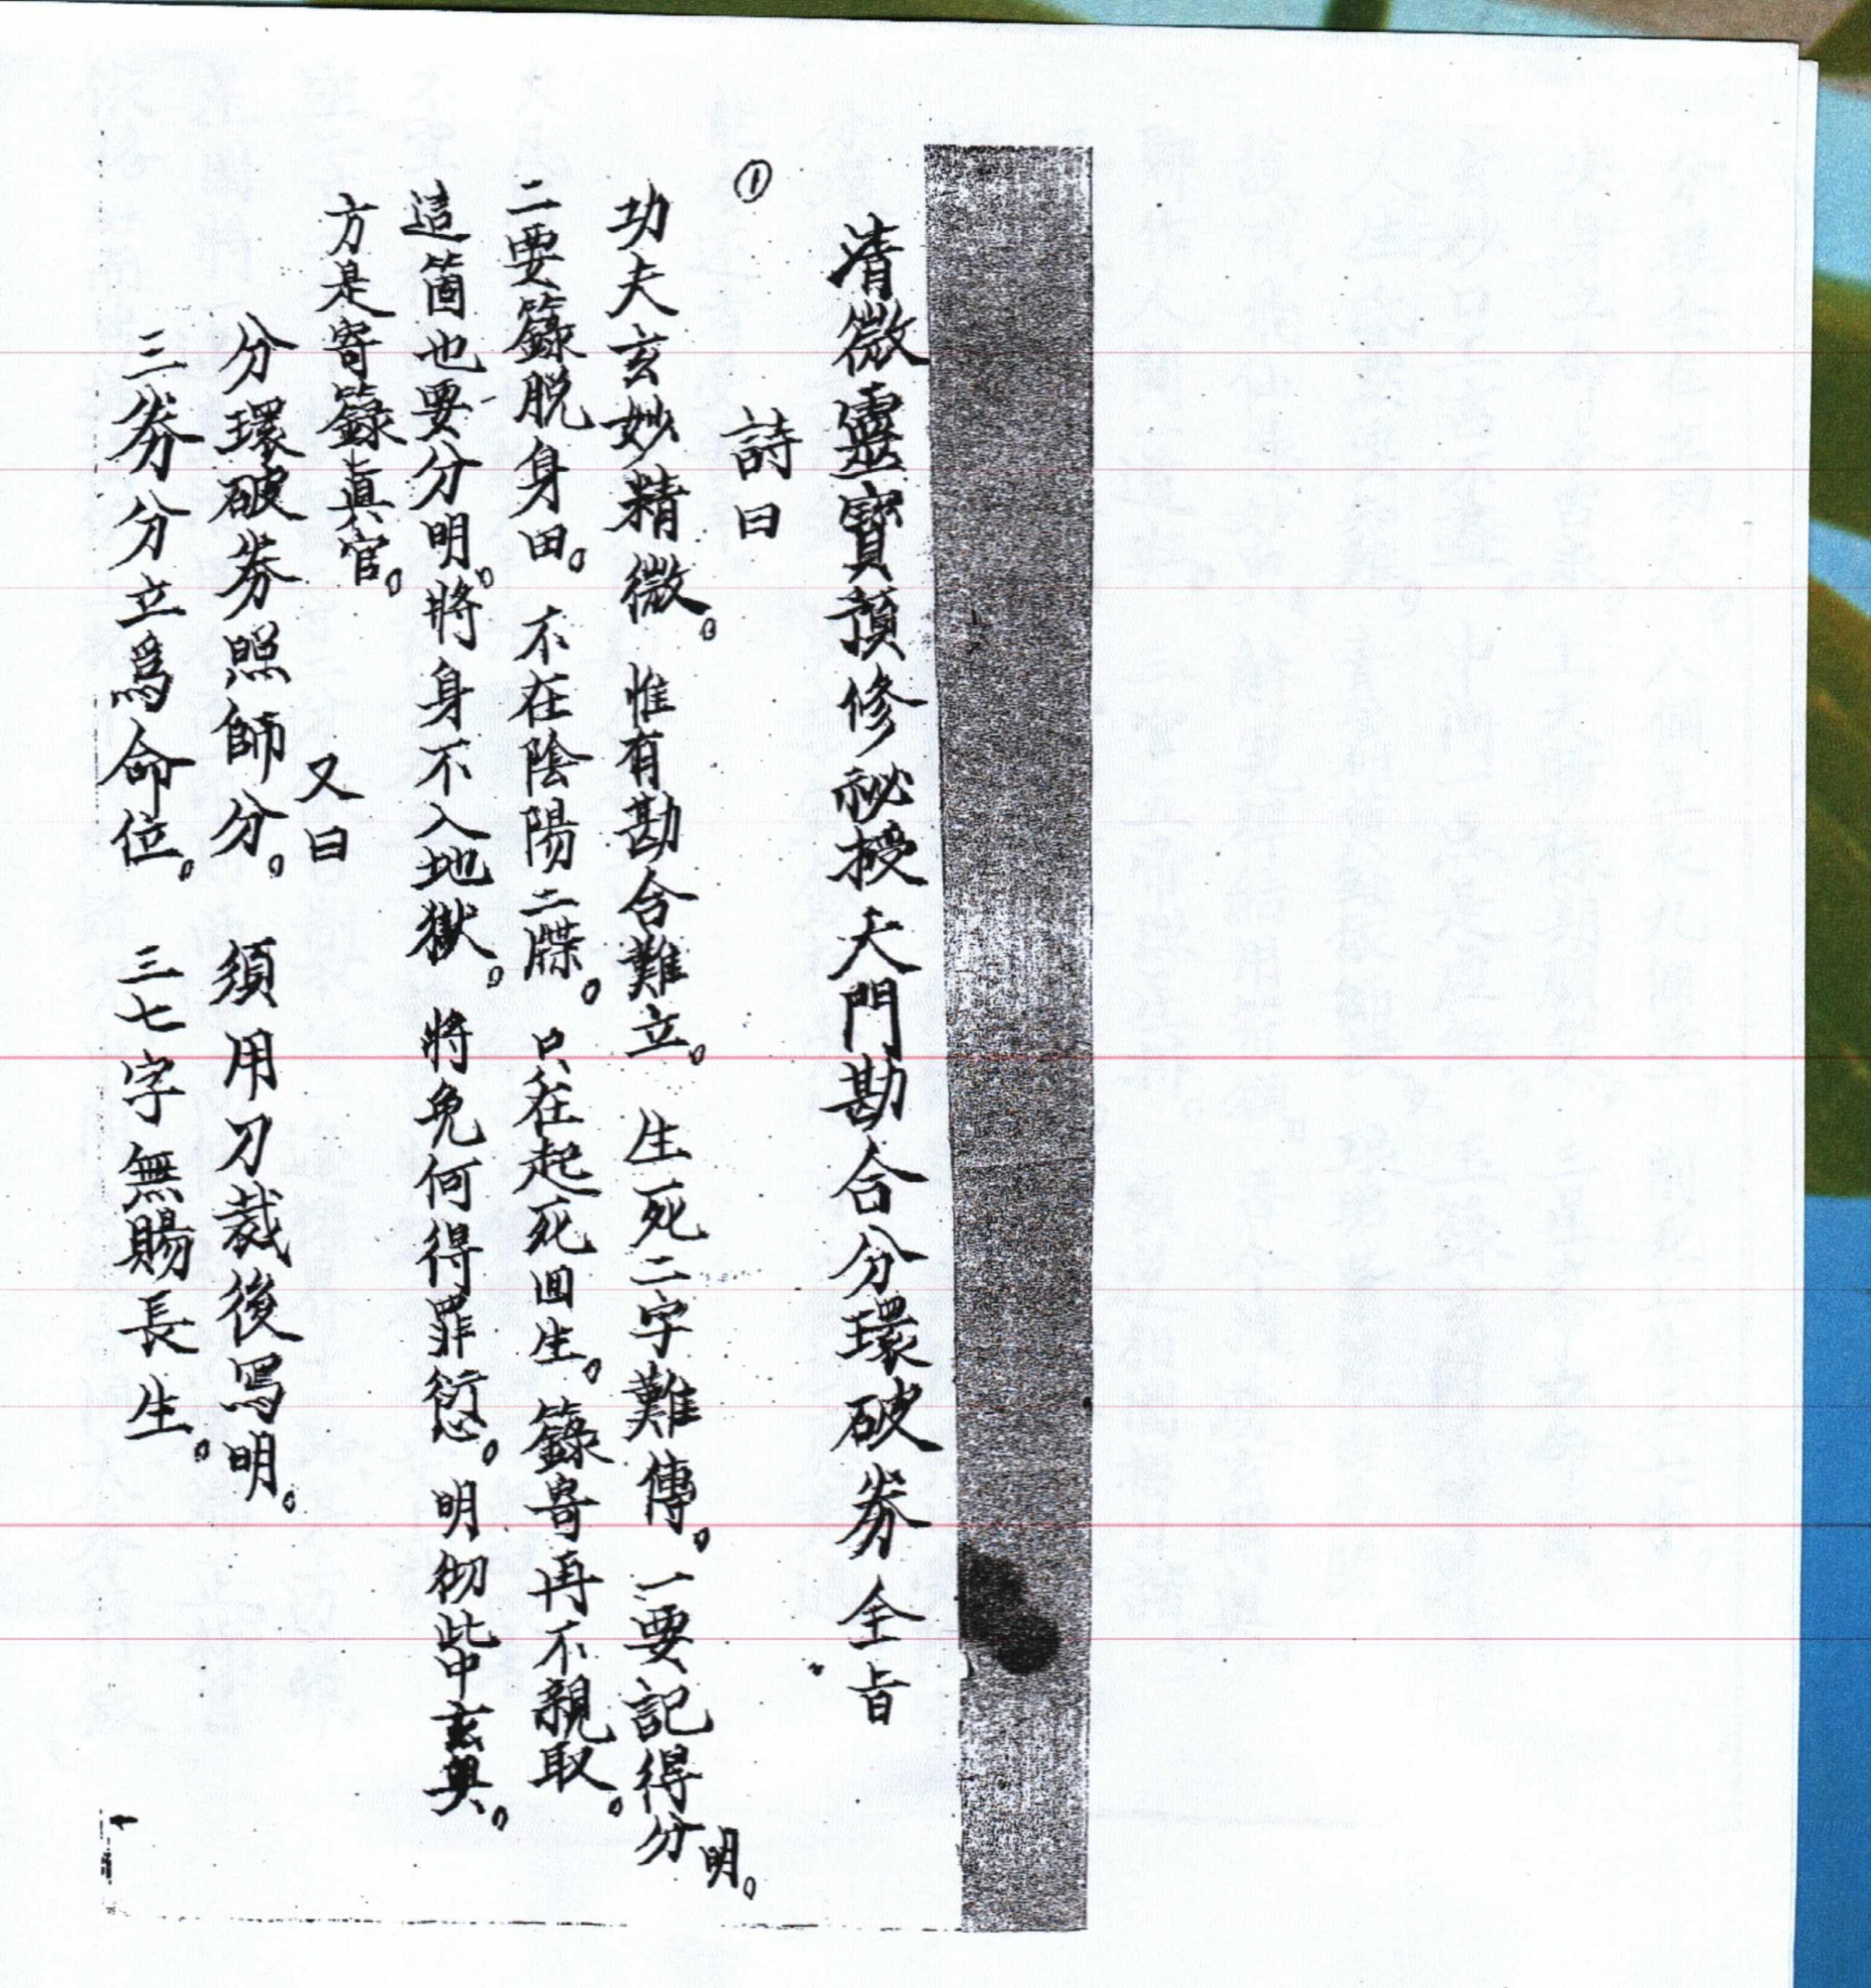 清微靈寶預修祕授天門勘合分環破券全旨
①
詩曰
功夫玄妙精微。惟有勘合難立。生死二字難傳。一要記得分明。
二要籙脫身田。不在陰陽二牒。只在起死回生。籙寄再不親取。
這箇也要分明。將身不入地獄。將免何得罪愆。明彻此中玄奧。
方是寄籙真官。
又曰
分環破券照師分。須用刀裁後寫明。
三券分立爲命位。三七字無賜長生。